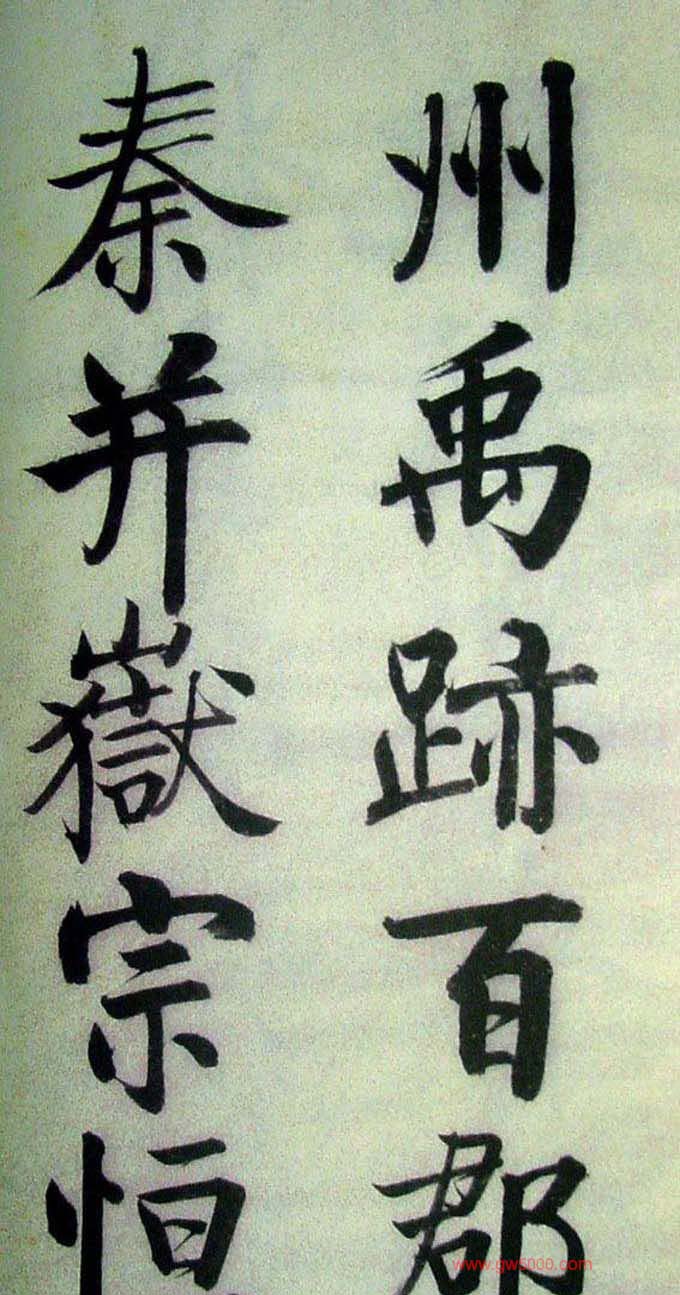 州禹跡百郡
秦并嶽宗恒
www.gw5000.com